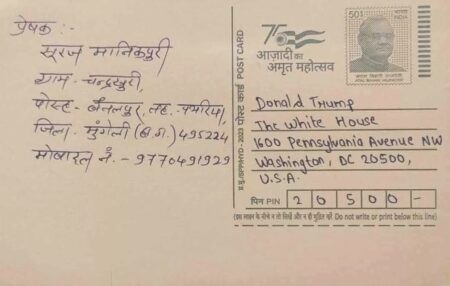 प्रेषक :-
सूरज मानिकपुरी
ग्राम - चन्द्रखुरी,
पोस्ट - बैतलपुर, तह. पथरिया,
जिला - मुंगेली (छ.ग.) 495224
मोबाइल नं. - 9770491929
POST CARD
पोस्ट कार्ड
2023
75
आज़ादी का
अमृत महोत्सव
50
भारत
INDIA
अटल बिहारी वाजपेयी
ATAL BIHARI VAJPAYEE
Donald Trump
The White House
1600 Pennsylvania Avenue NW
Washington, DC 20500,
U.S.A.
पिन PIN 2 0 5 0 0 -
(इस लाइन के नीचे न तो लिखें और न ही मुद्रित करें। Do not write or print below this line)